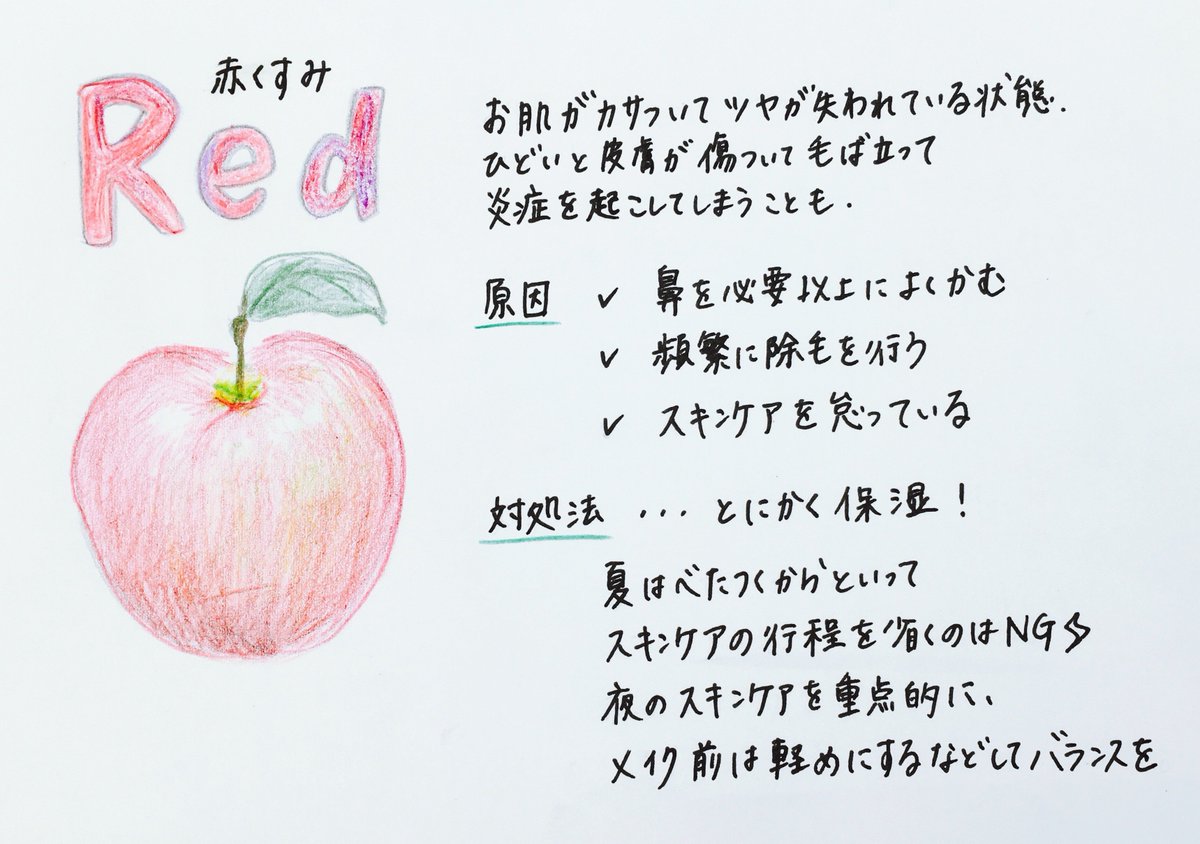 赤くすみ
Red
お肌がカサついてツヤが失われている状態.
ひどいと皮膚が傷ついて毛ば立って
炎症を起こしてしまうことも.
原因 ✓ 鼻を必要以上によくかむ
✓ 頻繁に除毛を行う
✓ スキンケアを怠っている
対処法 ... とにかく保湿!
夏はべたつくからといって
スキンケアの行程を省くのはNG
夜のスキンケアを重点的に、
メイク前は軽めにするなどしてバランスを